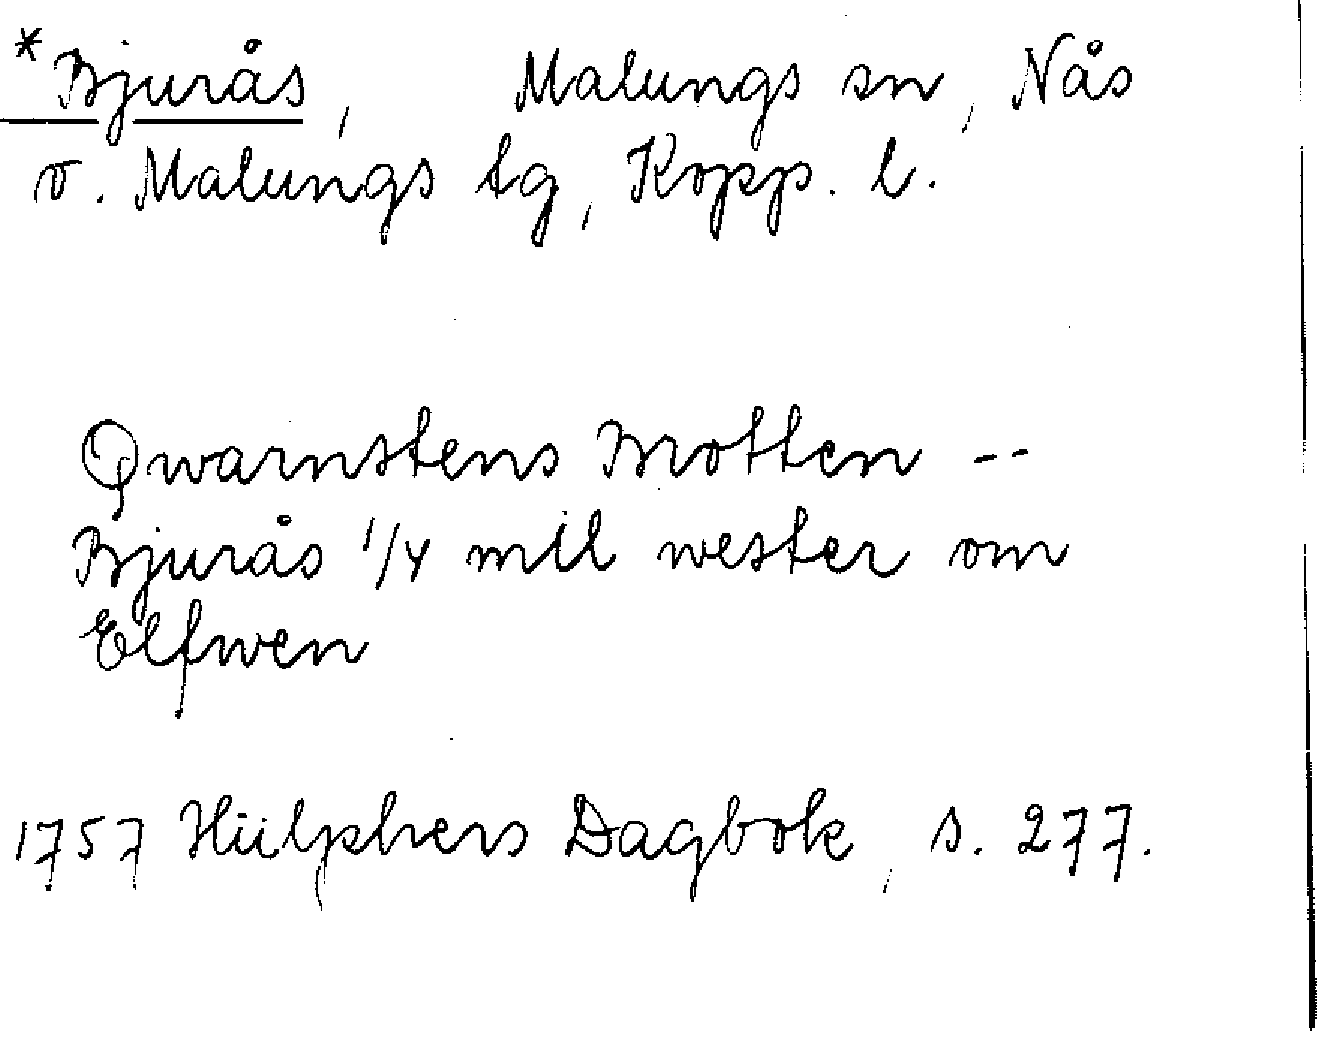 *Bjurås, Malungs sn, Nås
o. Malungs tg, Kopp. l.
Qwarnstens Brotten --
Bjurås 1/4 mil wester om
Elfwen
1757 Hülphers Dagbok, s. 277.